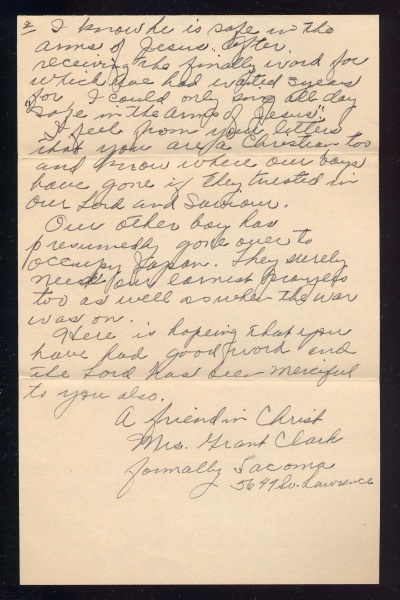 2 I know he is safe in the
arms of Jesus. After
receiving the finally word for
which I've had waited 3 years
for I could only sing all day
"Safe in the Arms of Jesus".
I feel from your letters
that you are a Christian too
and know where our boys
have gone if they trusted in
our Lord and Saviour.
Our other boy has
presumedly gone over to
occupy Japan. They surely
need our earnest prayers
too as well as when the war
was on.
Here is hopeing that you
have had good word and
the Lord has been merciful
to you also.
A friend in Christ
Mrs. Grant Clark
formally Tacoma
5649 So. Lawrence